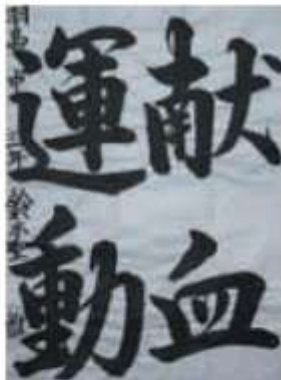 献血
運動